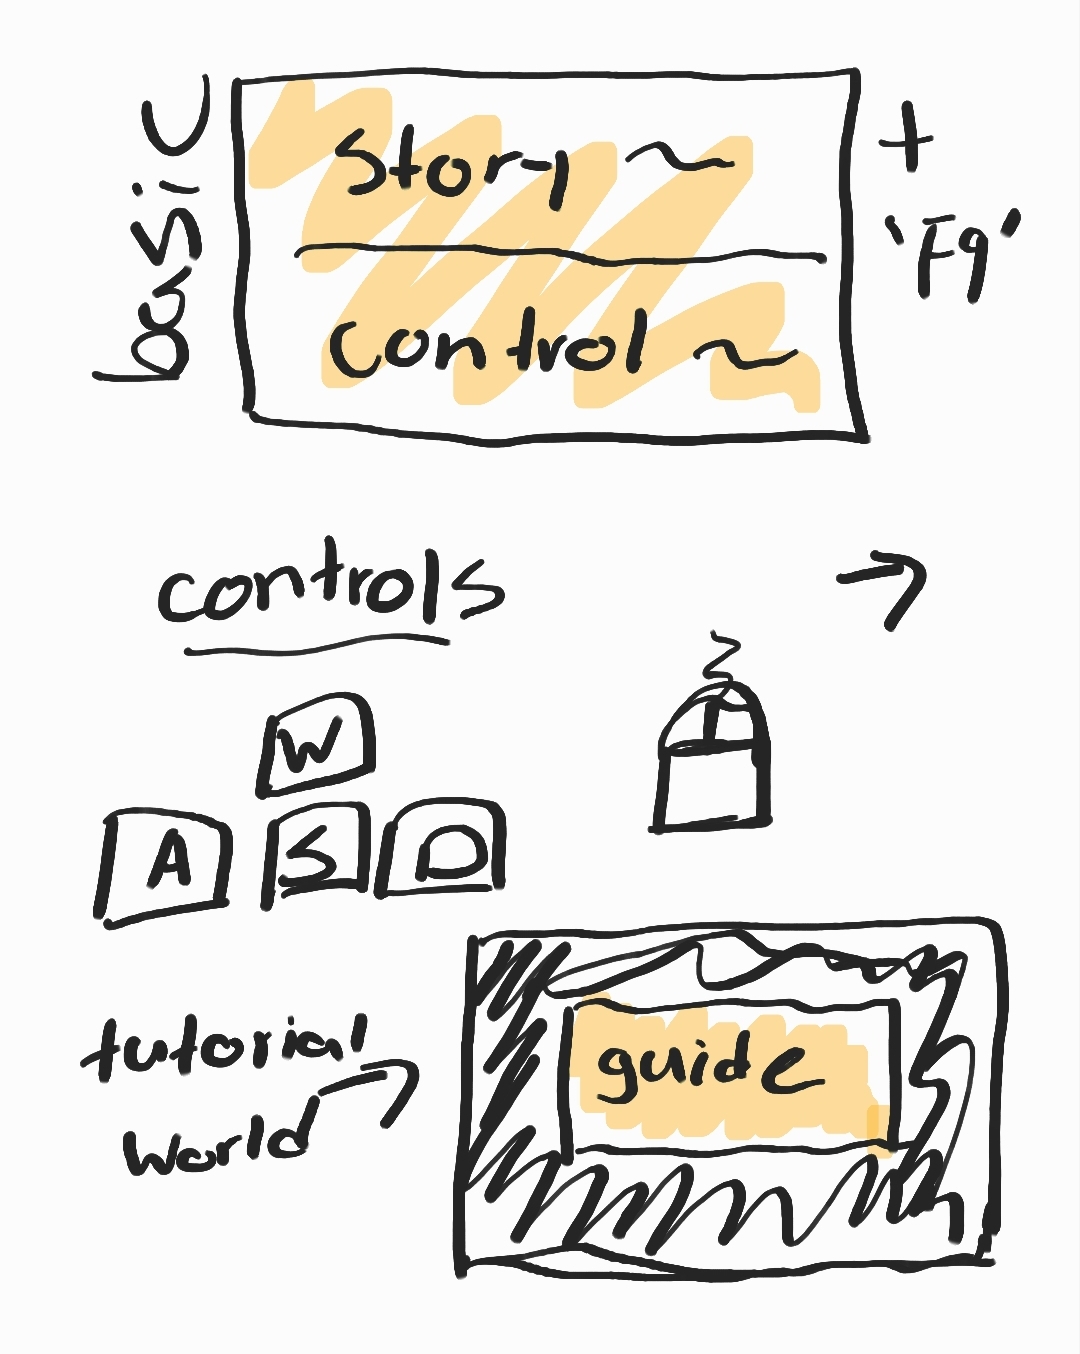 basic
story ~
control ~
+
'F9'
controls
W
A S D
tutorial
world
guide